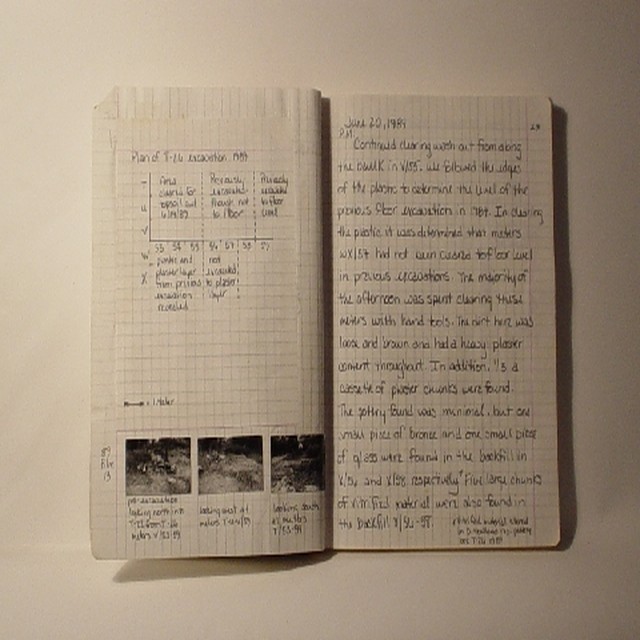 Plan of T-26 excavation 1989
Area
cleared for
topsoil out
6/19/89
Previously
excavated
though not
to floor
Previously
excavated
to floor
level
55 54 55 56 57 58 59
plastic and
plaster layer
from previous
excavation
revealed
not
excavated
to plaster
layer
= 1 Meter
89
Film
13
pre-excavation
looking north into
T-26 from T-26
meters V/53-59
looking west at
meters
looking south
at meters
V/53-59
June 20, 1989
29
P.M.
Continued clearing wash out from along
the baulk in V/55. We followed the edges
of the plastic to determine the level of the
previous floor excavation in 1987. In clearing
the plastic it was determined that meters
WX/57 had not been cleared to floor level
in previous excavations. The majority of
the afternoon was spent clearing these
meters with hand tools. The dirt here was
loose and brown and had a heavy plaster
content throughout. In addition, 1/3 a
cassette of plaster chunks were found.
The pottery found was minimal, but one
small piece of bronze and one small piece
of glass were found in the backfill in
X/56 and X/58 respectively. Five large chunks
of vitrified material were also found in
the backfill V/56-58.
vitrified material stored
in
on T-26 1989